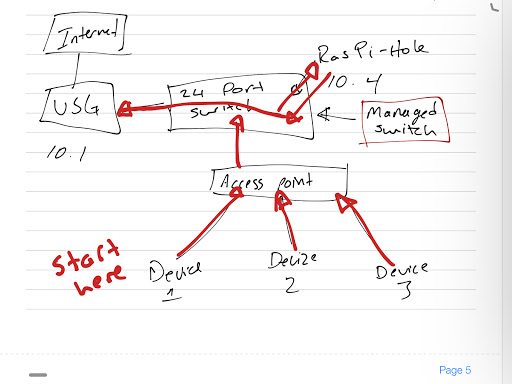 Internet
RasPi-Hole
10.4
24 Port
switch
USG
Managed
switch
10.1
Access point
Start
here
Device
1
Device
2
Device
3
Page 5